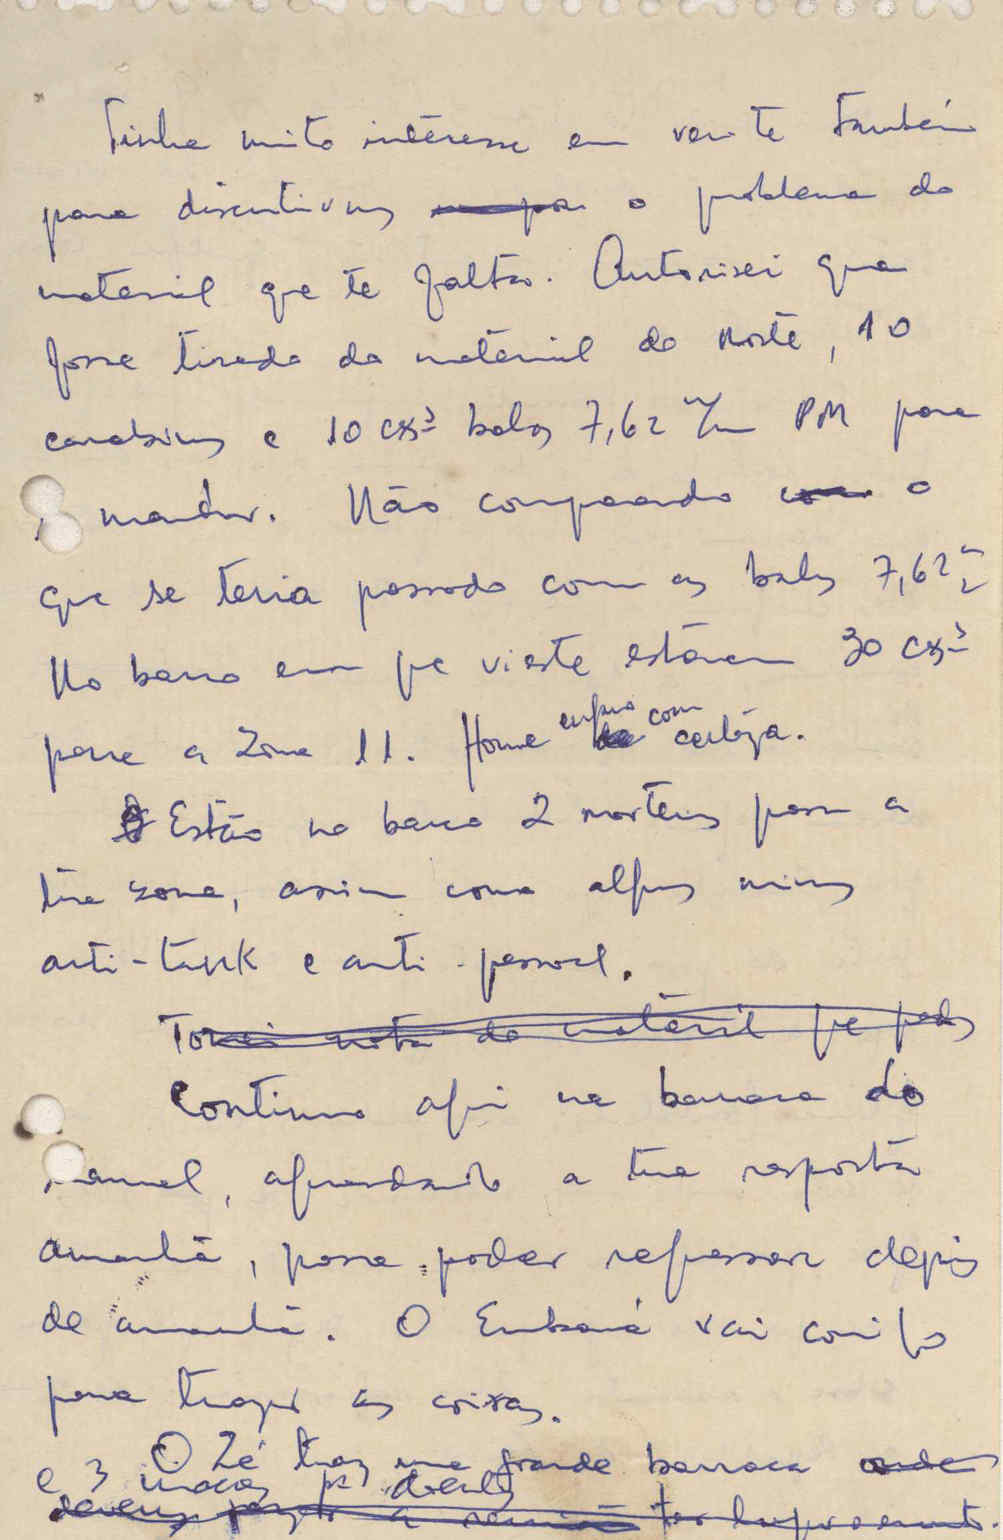 Tinha muito interesse em ver-te também
para discutirmos o problema do
material que te falta. Autorisei que
fosse tirado do material do Norte, 10
carabinas e 10 cxs balas 7,62 m/m PM para
mandar. Não compreendo o
que se teria passado com as balas 7,62
No barco em que vieste estavam 30 cxs
para a Zona 11. Houve engano com certeza.
Estão no barco 2 morteiros para a
tua zona, assim como algumas minas
anti-tank e anti-pessoal.
Tomei nota do material que pedes
Continuo aqui na barraca do
Manuel, aguardando a tua resposta
amanhã, para poder regressar depois
de amanhã. O Embaná vai contigo
para trazer as coisas.
O Zé traz uma grande barraca onde
e 3 macas pa doentes
a reunião